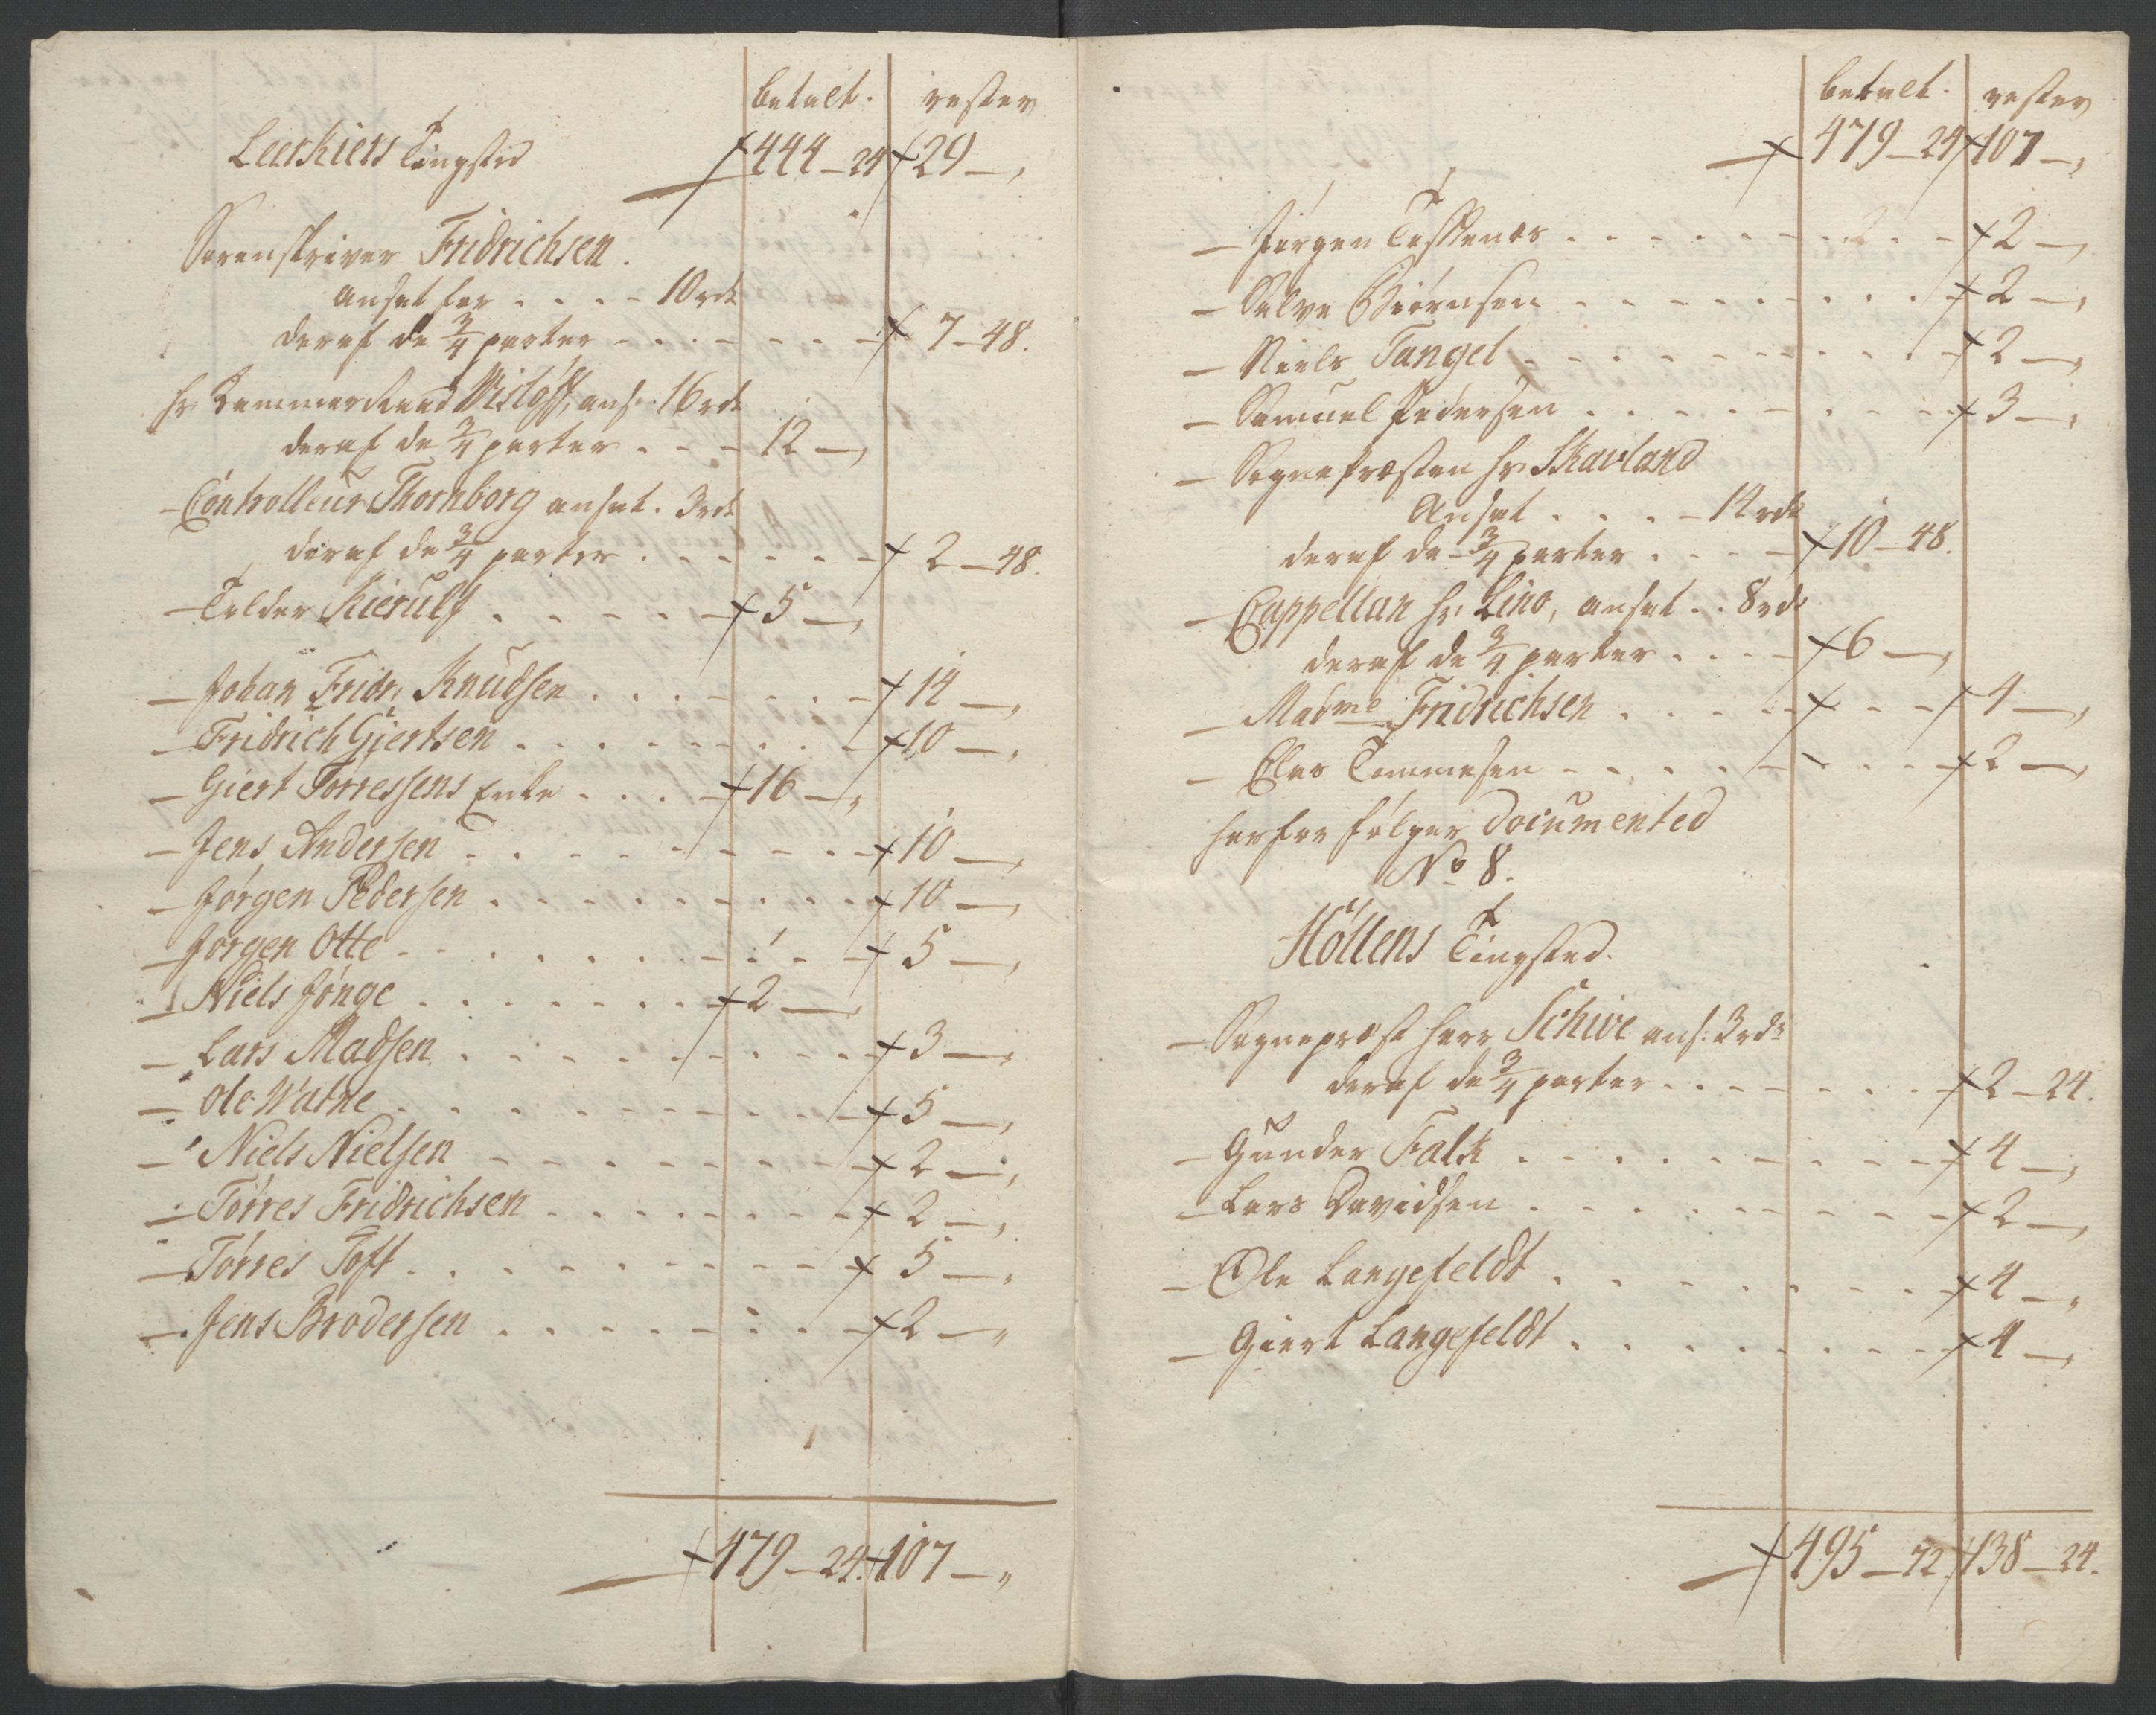 betalt. rester
Leerkiers Tingsted 444 - 24 29 -,
Sorenskriver Fridrichsen.
ansat for . . . - 10 rdr
deraf de 3/4 parter - . . - - - - 7 - 48.
hr Kammerraad Wisløff, ans: 16 rdr
deraf de 3/4 parter . - - 12 -,
- Controlleur Thornborg ansat. 3 rdr
deraf de 3/4 parter . . . - - - 2 - 48.
- Tolder Kierulf . . . . . - 5 -,
- Johan Fridr: Knudsen . . . - - . - 14 -,
- Fridrich Gjertsen . . . . - - . . - 10 -,
- Giert Torressens Enke . . . - 16 -,
- Jens Andersen - . . . - - - - - 10 -,
- Jørgen Pedersen . . . - - - . . - 10 -,
- Jørgen Otte - - . . . . . - . - - 5 -,
- Niels Jonge . . . . . . . - 2 -,
- Lars Madsen . . . . - - . . - - 3 -,
- Ole Watne . . . . . - - - - - 5 -,
- Niels Nielsen - - - - - - - - - 2 -,
- Torres Fridrichsen . . . . . . - - 2 -,
- Torres Toft . . . . - - - - - - 5 -,
- Jens Brodersen . . . . - - . . - 2 -,
479 - 24. 107 -,
betalt. rester
479 - 24 107 -,
- Jørgen . . . - - - - . - - 2 -,
- Salve Biørnsen . . - - - - . . . 2 -,
- Niels Tangel . - - . - - - . . - 2 -,
- Samuel Pedersen . . . . - - . - - 3 -,
- Sognepræsten hr Skavland
Ansat . . . - 14 rdr
deraf de 3/4 parter . . . - 10 - 48.
- Cappellan hr: Lino, ansat . . 8 rdr
deraf de 3/4 parter . . . - 6 -,
- Madme Fridrichsen . . . - - - - 4 -,
- Elias Tommesen - - . . - - . . - 2 -,
herfor følger Documented
No 8.
Höllens Tingsted.
- Sognepræst herr Schive ans: 3 rdr
deraf de 3/4 parter . . - - - . . - 2 - 24.
- Gunder Falk . . . . . - - - - 4 -,
- Lars Davidsen . . . . . . - - - 2 -,
- Ole Langefeldt . . . . - . . - - 4 -,
- Giert Langefeldt . . . . . . - - 4 -,
495 - 72. 138 - 24.